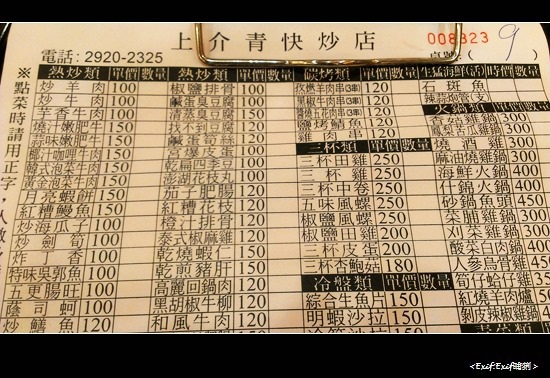 上介青快炒店
008323
電話：2920-2325
桌號：( 9 )
※點菜時請用正字
熱炒類 單價 數量
炒羊肉 100
炒牛肉 100
芋香牛肉 100
燒汁嫩肥牛 150
蒜味嫩肥牛 150
椰汁咖哩牛肉 150
韓式泡菜牛肉 150
黃金泡菜牛肉 150
月亮蝦餅 150
紅糟鰻魚 150
炒海瓜子 100
炒劍筍 100
炸丁香 100
特味吳郭魚 100
五更腸旺 100
蔭司蚵 100
炒鱔魚 120
熱炒類 單價 數量
椒鹽排骨 100
鹹蛋臭豆腐 100
清蒸臭豆腐 150
找不到豆腐 120
鹹蛋筍絲 120
宮爆皮蛋 120
乾扁四季豆 100
澎湖花枝丸 100
茄子肥腸 120
紅糟花枝 120
橙汁排骨 120
泰式椒麻雞 120
乾燒蝦仁 150
乾煎豬肝 150
高麗回鍋肉 120
黑胡椒牛柳 120
和風牛肉 120
碳烤類 單價 數量
孜然羊肉串(3串) 120
黑椒牛肉串(3串) 120
鹽烤鯖魚 120
雞肉串 120
三杯類 單價 數量
三杯田雞 250
三杯中卷 250
五味風螺 250
椒鹽風螺 250
椒鹽田雞 200
三杯皮蛋 200
三杯杏鮑菇 180
冷盤類 單價 數量
綜合生魚片 150
明蝦沙拉 150
生猛海鮮(活) 時價 數量
石斑魚
火鍋類 單價 數量
燒酒雞 300
麻油燒雞鍋 350
海鮮火鍋 300
什錦火鍋 300
砂鍋魚頭 450
菜脯雞鍋 350
刈菜雞鍋 350
酸菜白肉鍋 350
人參烏骨雞 450
荀子蛤仔雞 350
紅燒羊肉爐 500
剝皮辣椒雞鍋 350
<Exif:Exif蹤揪>